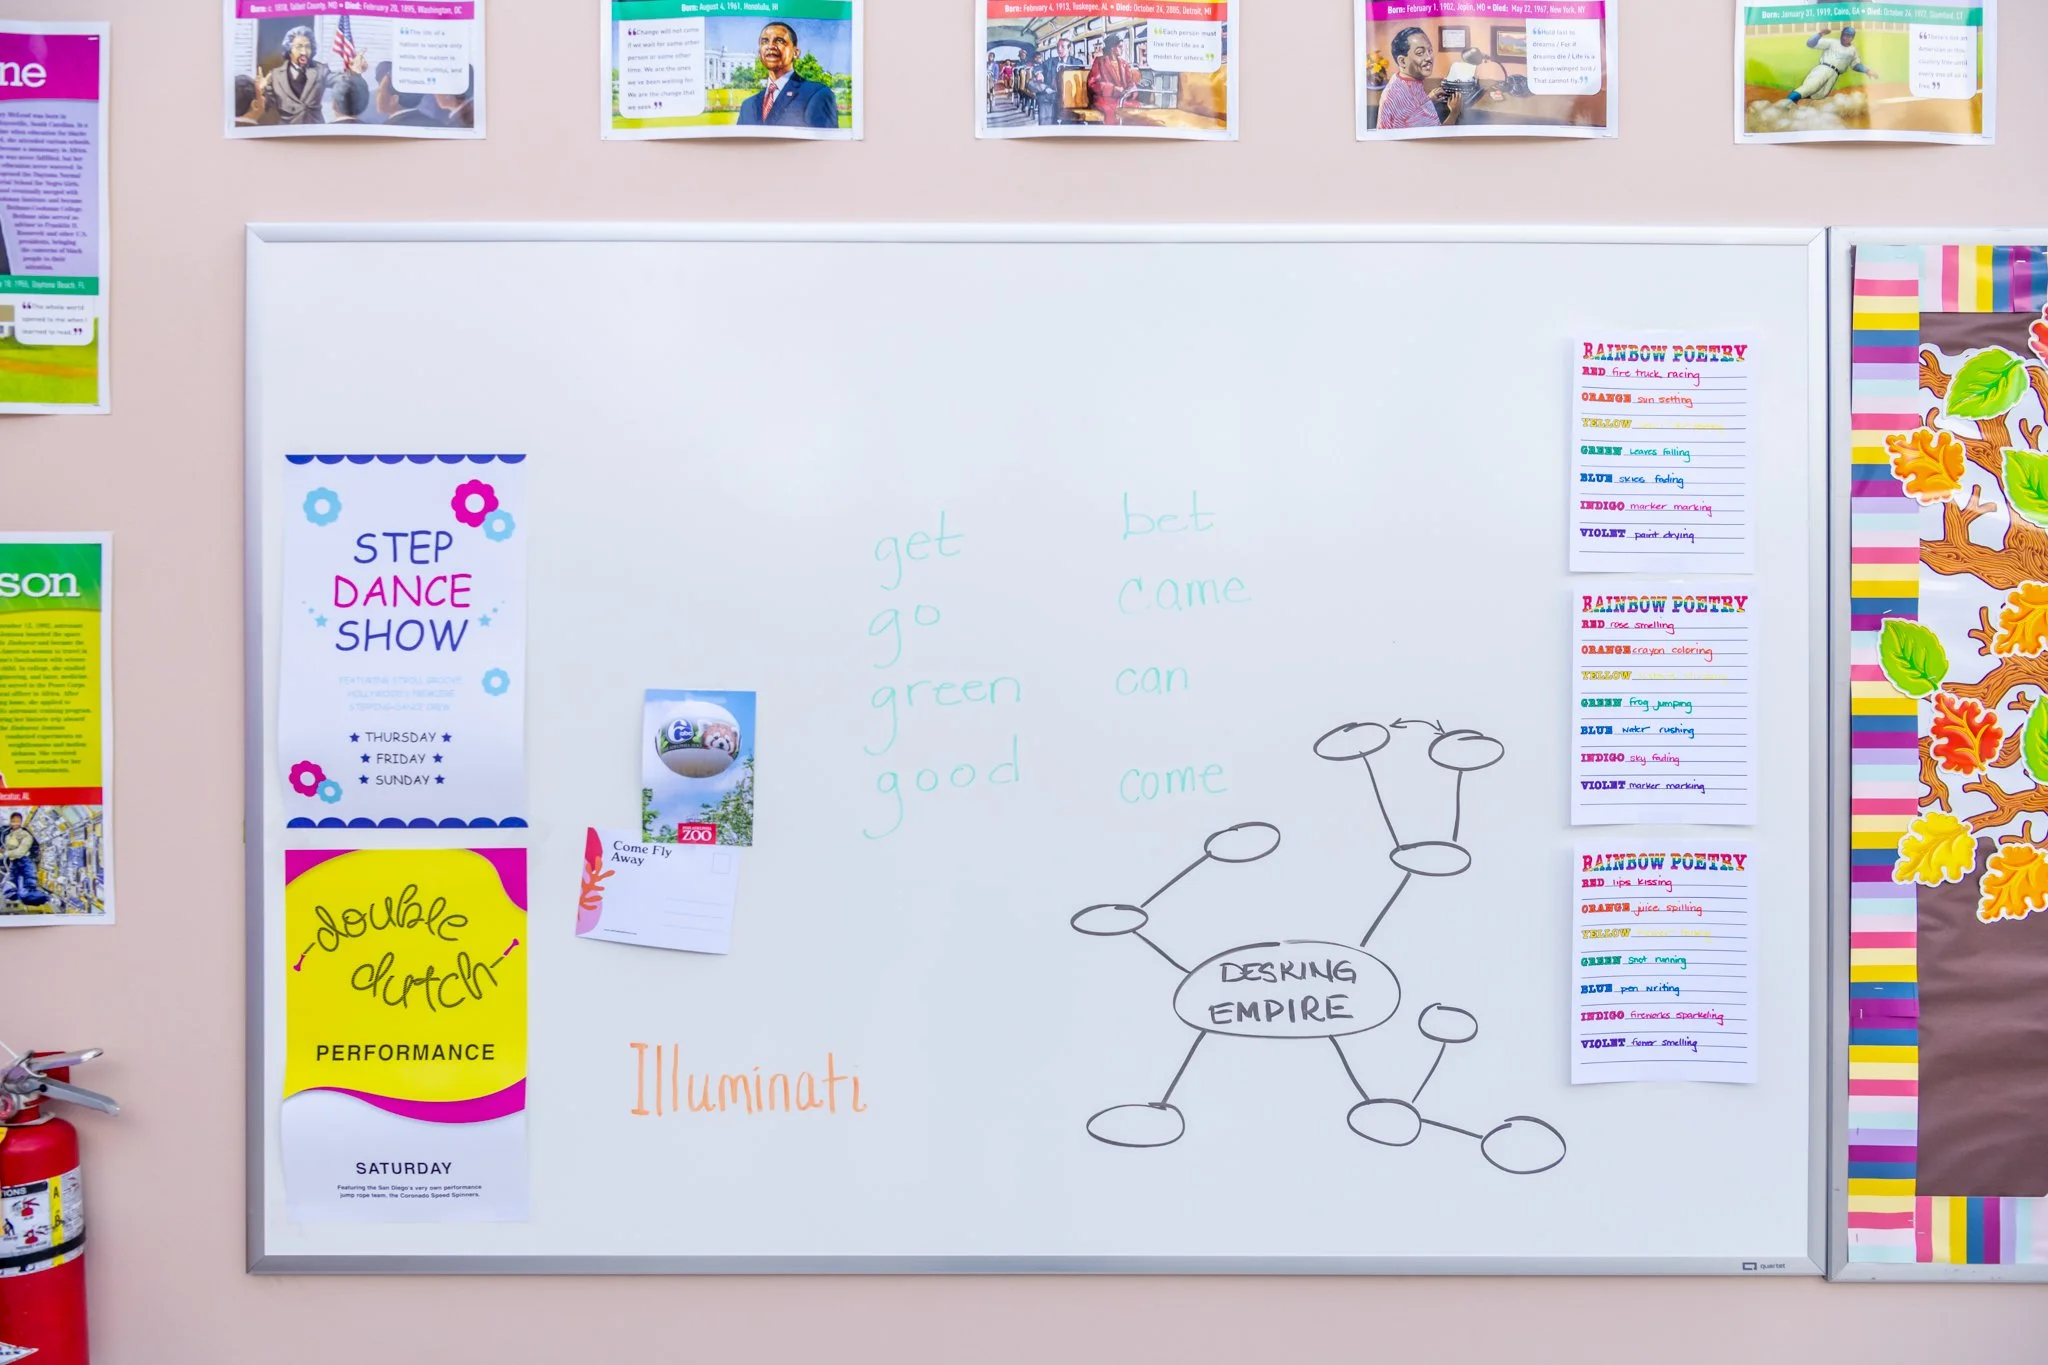 Born: c. 1818, Talbot County, MD • Died: February 20, 1895, Washington, DC
The life of a
nation is secure only
while the nation is
honest, truthful, and
virtuous.
Born: August 4, 1961, Honolulu, HI
Change will not come
if we wait for some other
person or some other
time. We are the ones
we've been waiting for.
We are the change that
we seek.
Born: February 4, 1913, Tuskegee, AL • Died: October 24, 2005, Detroit, MI
Each person must
live their life as a
model for others.
Born: February 1, 1902, Joplin, MO • Died: May 22, 1967, New York, NY
Hold fast to
dreams / For if
dreams die / Life is a
broken-winged bird /
That cannot fly.
Born: January 31, 1919, Cairo, GA • Died: October 24, 1972, Stamford, CT
There's not an
American in this
country free until
every one of us is
free.
ne
The whole world
opened to me when I
learned to read.
son
STEP
DANCE
SHOW
FEATURING STROLL GROOVE
HOLLYWOOD'S PREMIERE
STEPPING-DANCE CREW
THURSDAY
FRIDAY
SUNDAY
double
dutch
PERFORMANCE
SATURDAY
Featuring the San Diego's very own performance
jump rope team, the Coronado Speed Spinners.
ZOO
Come Fly
Away
get
go
green
good
bet
came
can
come
Illuminati
DESKING
EMPIRE
RAINBOW POETRY
RED fire truck racing
ORANGE sun setting
YELLOW
GREEN leaves falling
BLUE skies fading
INDIGO marker marking
VIOLET paint drying
RAINBOW POETRY
RED rose smelling
ORANGE crayon coloring
YELLOW
GREEN frog jumping
BLUE water rushing
INDIGO sky fading
VIOLET marker marking
RAINBOW POETRY
RED lips kissing
ORANGE juice spilling
YELLOW
GREEN snot running
BLUE pen writing
INDIGO fireworks sparkeling
VIOLET flower smelling
quartet